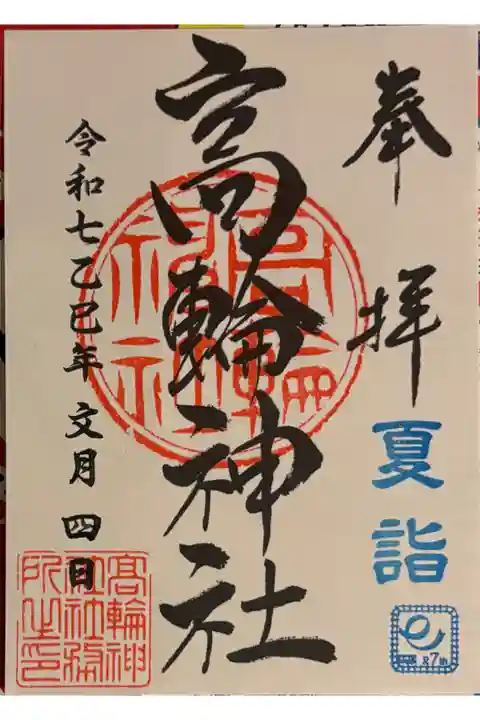 奉拝
夏詣
高輪神社
令和七乙巳年 文月 四日
高輪神
社社務
所之印
7th